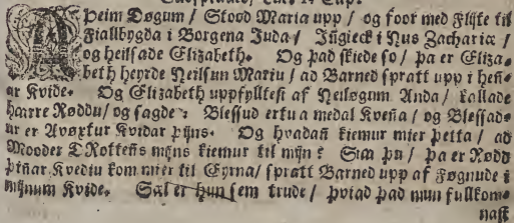 A Þeim Døgum / Stood Maria upp / og foor med Flijte til
Fiallbygda i Borgena Juda / Jñgieck i Hus Zachariæ /
og heilsade Elizabeth. Og þad skiede so / þa er Eliza-
beth heyrde Heilsun Mariu / ad Barned spratt upp i heñ-
ar Kvide. Og Elizabeth uppfylltest af Heiløgum Anda / kallade
haarre Røddu / og sagde: Blessud ertu a medal Kveña / og Blessad-
ur er Avøxtur Kvidar þijns. Og hvadañ kiemur mier þetta / ad
Mooder DRotteñs mijns kiemur til mijn? Siaa þu / þa er Rødd
þiñar Kvediu kom mier til Eyrna / spratt Barned upp af Føgnude i
mijnum Kvide. Sæl er hun sem trude / þviad þad mun fullkom-
nast